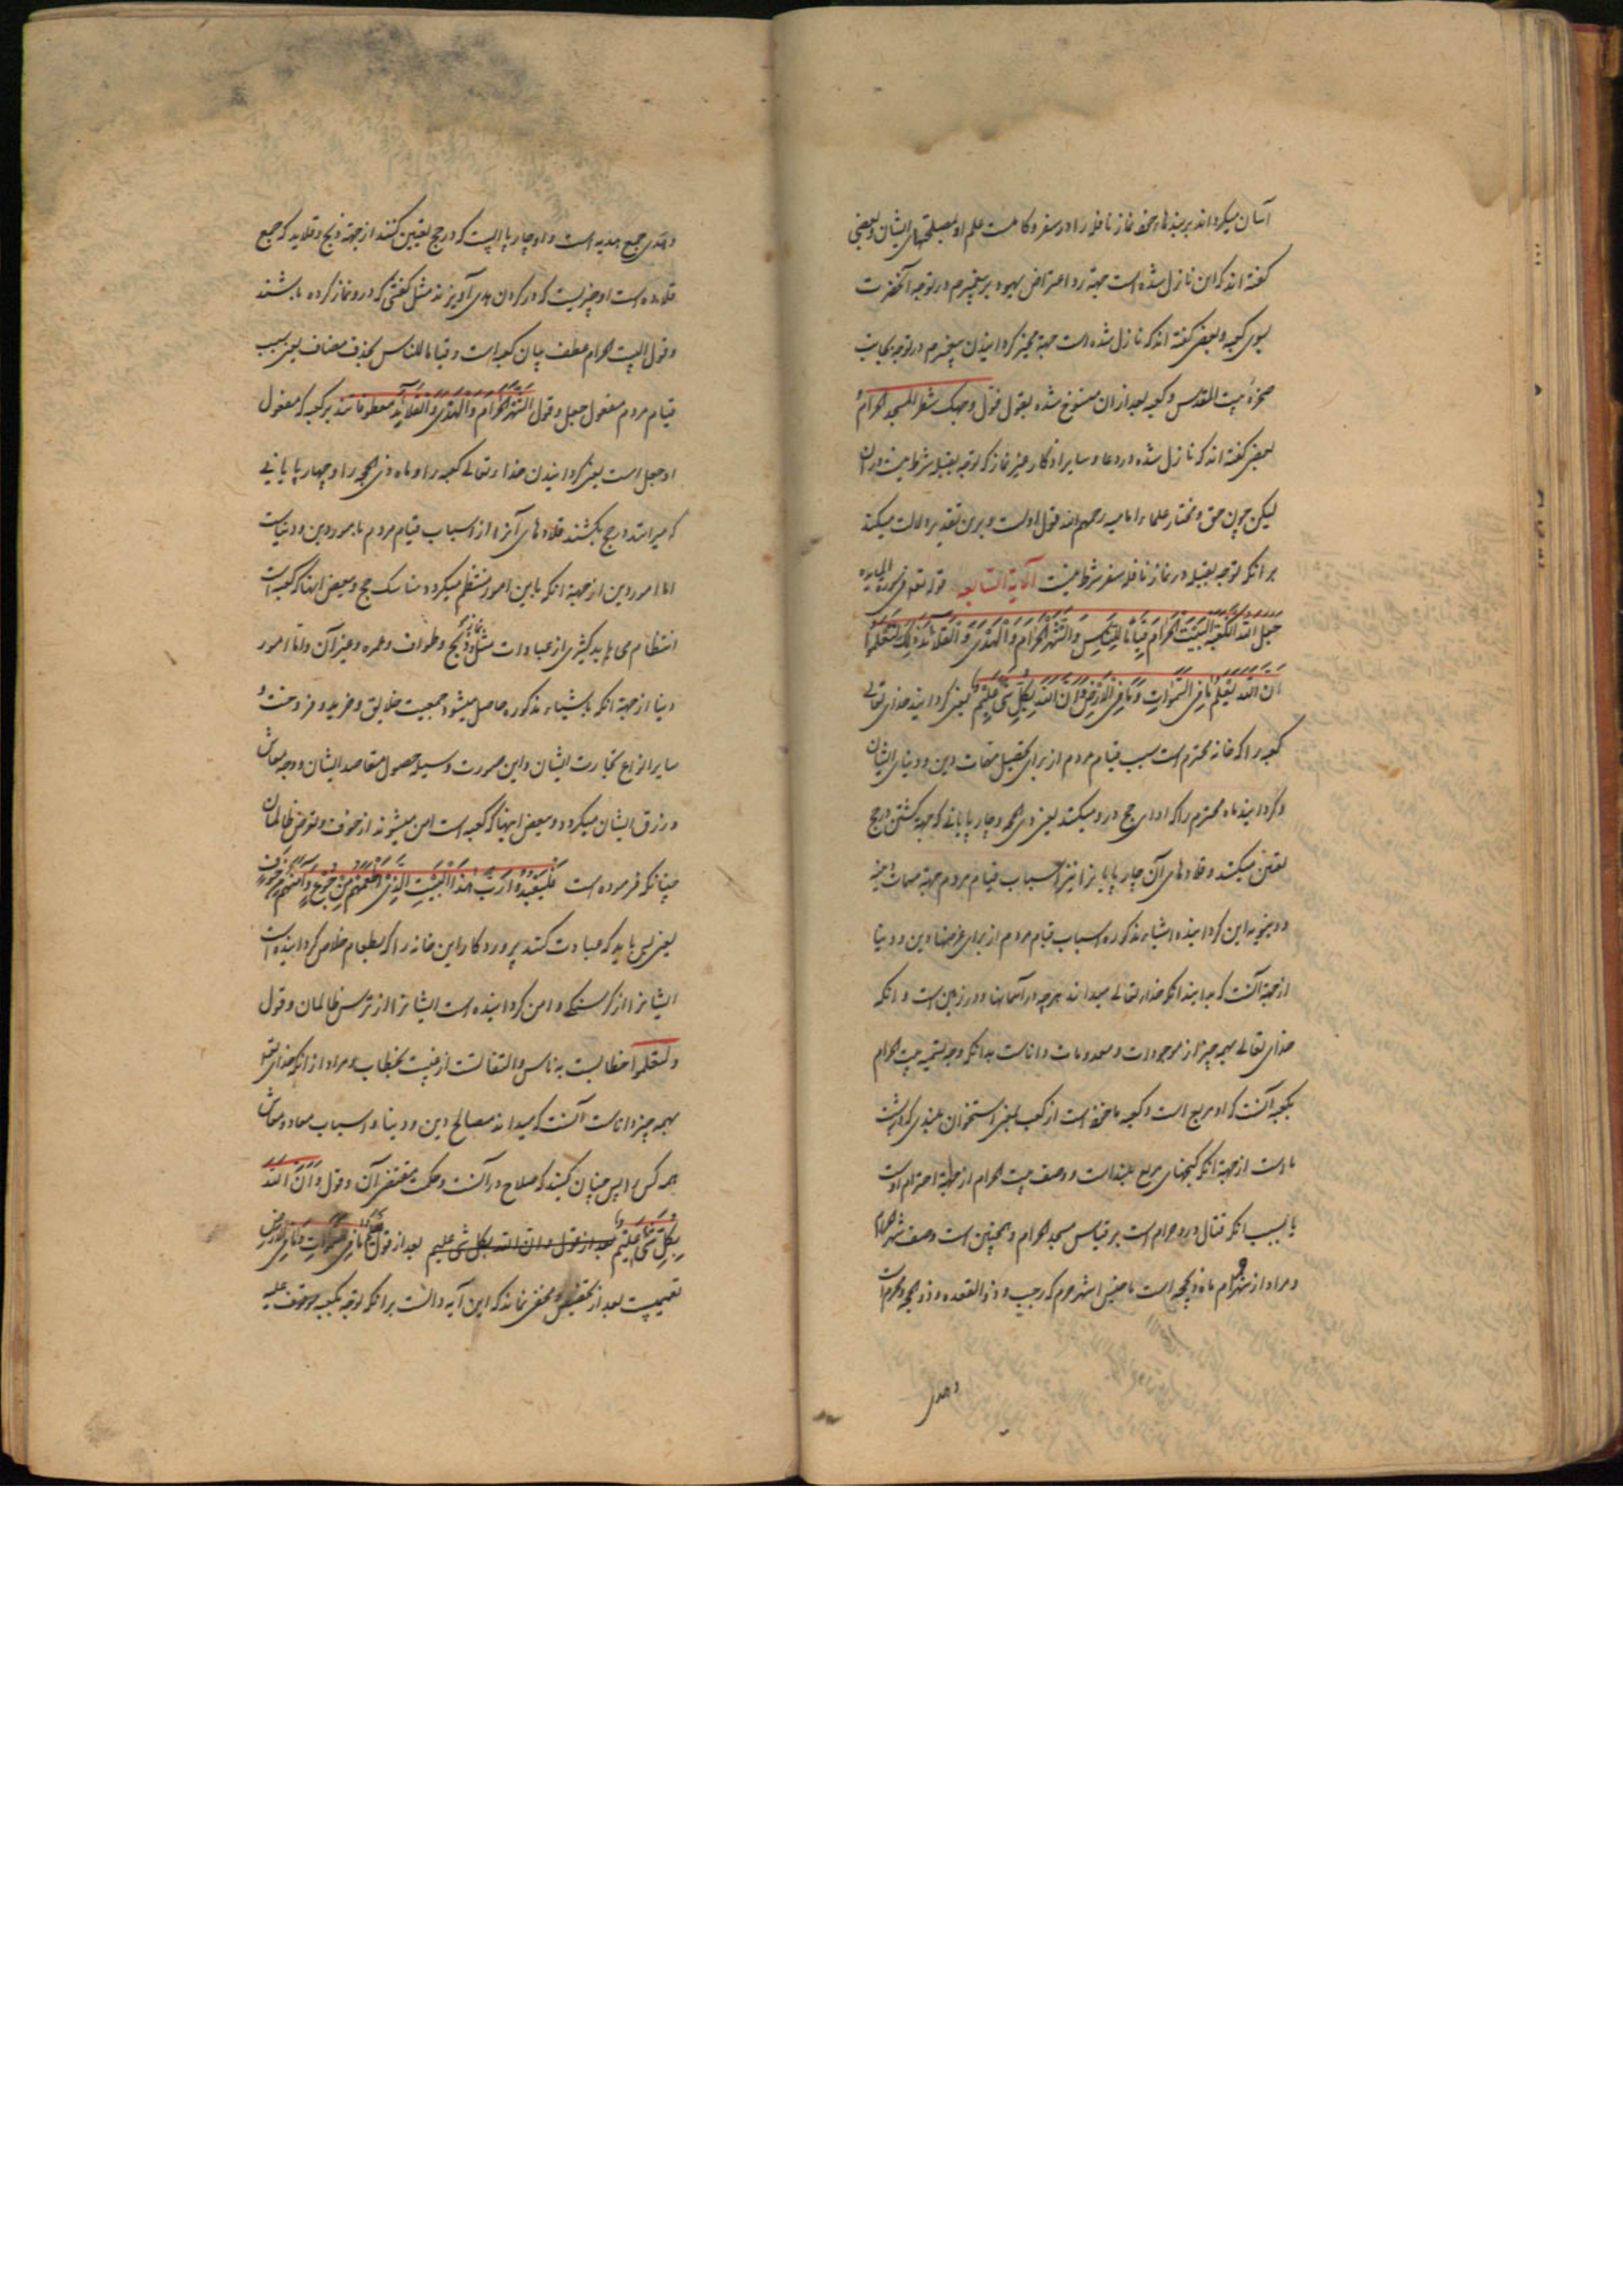 آسان میکرداند بر بندها محض نماز نافله را در سفر و کاملست علم او بمصلحتهای ایشان و بعضی
کفته اند که این نازل شده است جهة رد اعتراض یهود بر پیغمبرم در توجه آنحضرت
بسوی کعبه و بعضی کفته اند که نازل شده است جهة مخیر کردانیدن پیغمبرم در توجه بجانب
صخرهٔ بیت المقدس و کعبه بعد از ان منسوخ شده بقول فول وجهک شطر المسجد الحرام و
بعضی کفته اند که نازل شده در دعا و سایر اذکار غیر نماز که توجه بقبله شرط نیست در ان
لیکن چون حق و مختار علماء امامیه رحمهم الله قول اولست و برین تقدیر دلالت میکند
بر انکه توجه بقبله در نماز نافله سفر شرط نیست الآیة السابعه قوله تعالی فی سورة المایده
جعل الله الکعبة البیت الحرام قیاما للناس والشهر الحرام والهدی والقلائد ذلک لتعلموا
ان الله یعلم ما فی السموات وما فی الارض وان الله بکل شیء علیم یعنی کردانید خدای تعالی
کعبه را که خانه محترم است سبب قیام مردم از برای تحصیل مهمات دین و دنیای ایشان
و کردانید ماه محترم را که ادای حج درو میکنند یعنی ذی الحجه و چارپایانی که جهة کشتن در حج
تعیین میکنند و قلادهای آن چارپایانرا نیز اسباب قیام مردم جهة مهمات
این کردانیدن اشیاء مذکوره اسباب قیام مردم از برای غرضهای دین و دنیا
از جهة آنست که بدانید انکه خدای تعالی میداند هرچه در آسمانها و در زمین است و انکه
خدای تعالی بهمه چیز از موجودات و معدومات داناست بدانکه وجه تسمیه بیت الحرام
بکعبه آنست که او مربع است و کعبه ماخوذ است از کعب بمعنی استخوان بلندی که در پشت
پاست از جهة انکه کنجهای مربع بلند است و وصف بیت الحرام از جهة احترام اوست
یا بسبب انکه قتال درو حرام است بر قیاس مسجد الحرام و همچنین است وصف شهر الحرام
و مراد از شهر حرام ماه ذیحجه است یا جنس اشهر حرم که رجب و ذو القعده و ذو الحجه و محرم است
و هدی
و هدی جمع هدیه است و او چارپاییست که در حج تعیین کنند از جهة ذبح و قلاید که جمع
قلاده است او چیزیست که در کردن هدی آویزند مثل کفشی که درو نماز کرده باشند
و قول البیت الحرام عطف بیان کعبه است و قیاما للناس بحذف مضاف یعنی سبب
قیام مردم مفعول جعل و قول الشهر الحرام والهدی والقلاید معطوفانند بر کعبه که مفعول
او جعل است یعنی کردانیدن خدا تعالی کعبه را و ماه ذی الحجه را و چهارپایانی
که میرانند در حج بکشند قلادهای آنرا از اسباب قیام مردم بامور دین و دنیاست
اما امور دین از جهة انکه باین امور منتظم میکردد مناسک حج و ببعض اینها که کعبه است
انتظام می یابد کثیری از عبادات مثل نماز و ذبح و طواف و عمره و غیر آن و اما امور
دنیا از جهة انکه باشیاء مذکوره حاصل میشود جمعیت خلایق و خرید و فروخت و
سایر انواع تجارت ایشان و این صورت وسیله حصول مقاصد ایشان و وجه معاش
و رزق ایشان میکردد و ببعض اینها که کعبه است امن میشوند از خوف و تعرض ظالمان
چنانکه فرموده است فلیعبدوا رب هذا البیت الذی اطعمهم من جوع وآمنهم من خوف
یعنی پس باید که عبادت کنند پروردکار این خانه را که بطعام خلاص کردانیده است
ایشانرا از کرسنکی و امن کردانیده است ایشانرا از ترس ظالمان و قول
ولتعلموا خطابست به ناس و التفاتست از غیبت بخطاب و مراد از انکه خدای تعالی
بهمه چیز داناست آنست که میداند مصالح دین و دنیا و اسباب معاد و معاش
همه کس را پس چنان کند که صلاح در آنست و حکمت مقتضی آن و قول وان الله
بکل شیء علیم بعد از قول وان الله بکل شی علیم بعد از قول یعلم ما فی السموات وما فی الارض
تعمیمست بعد از تخصیص و مخفی نماند که این آیه دالست بر انکه توجه بکعبه موقوف علیه